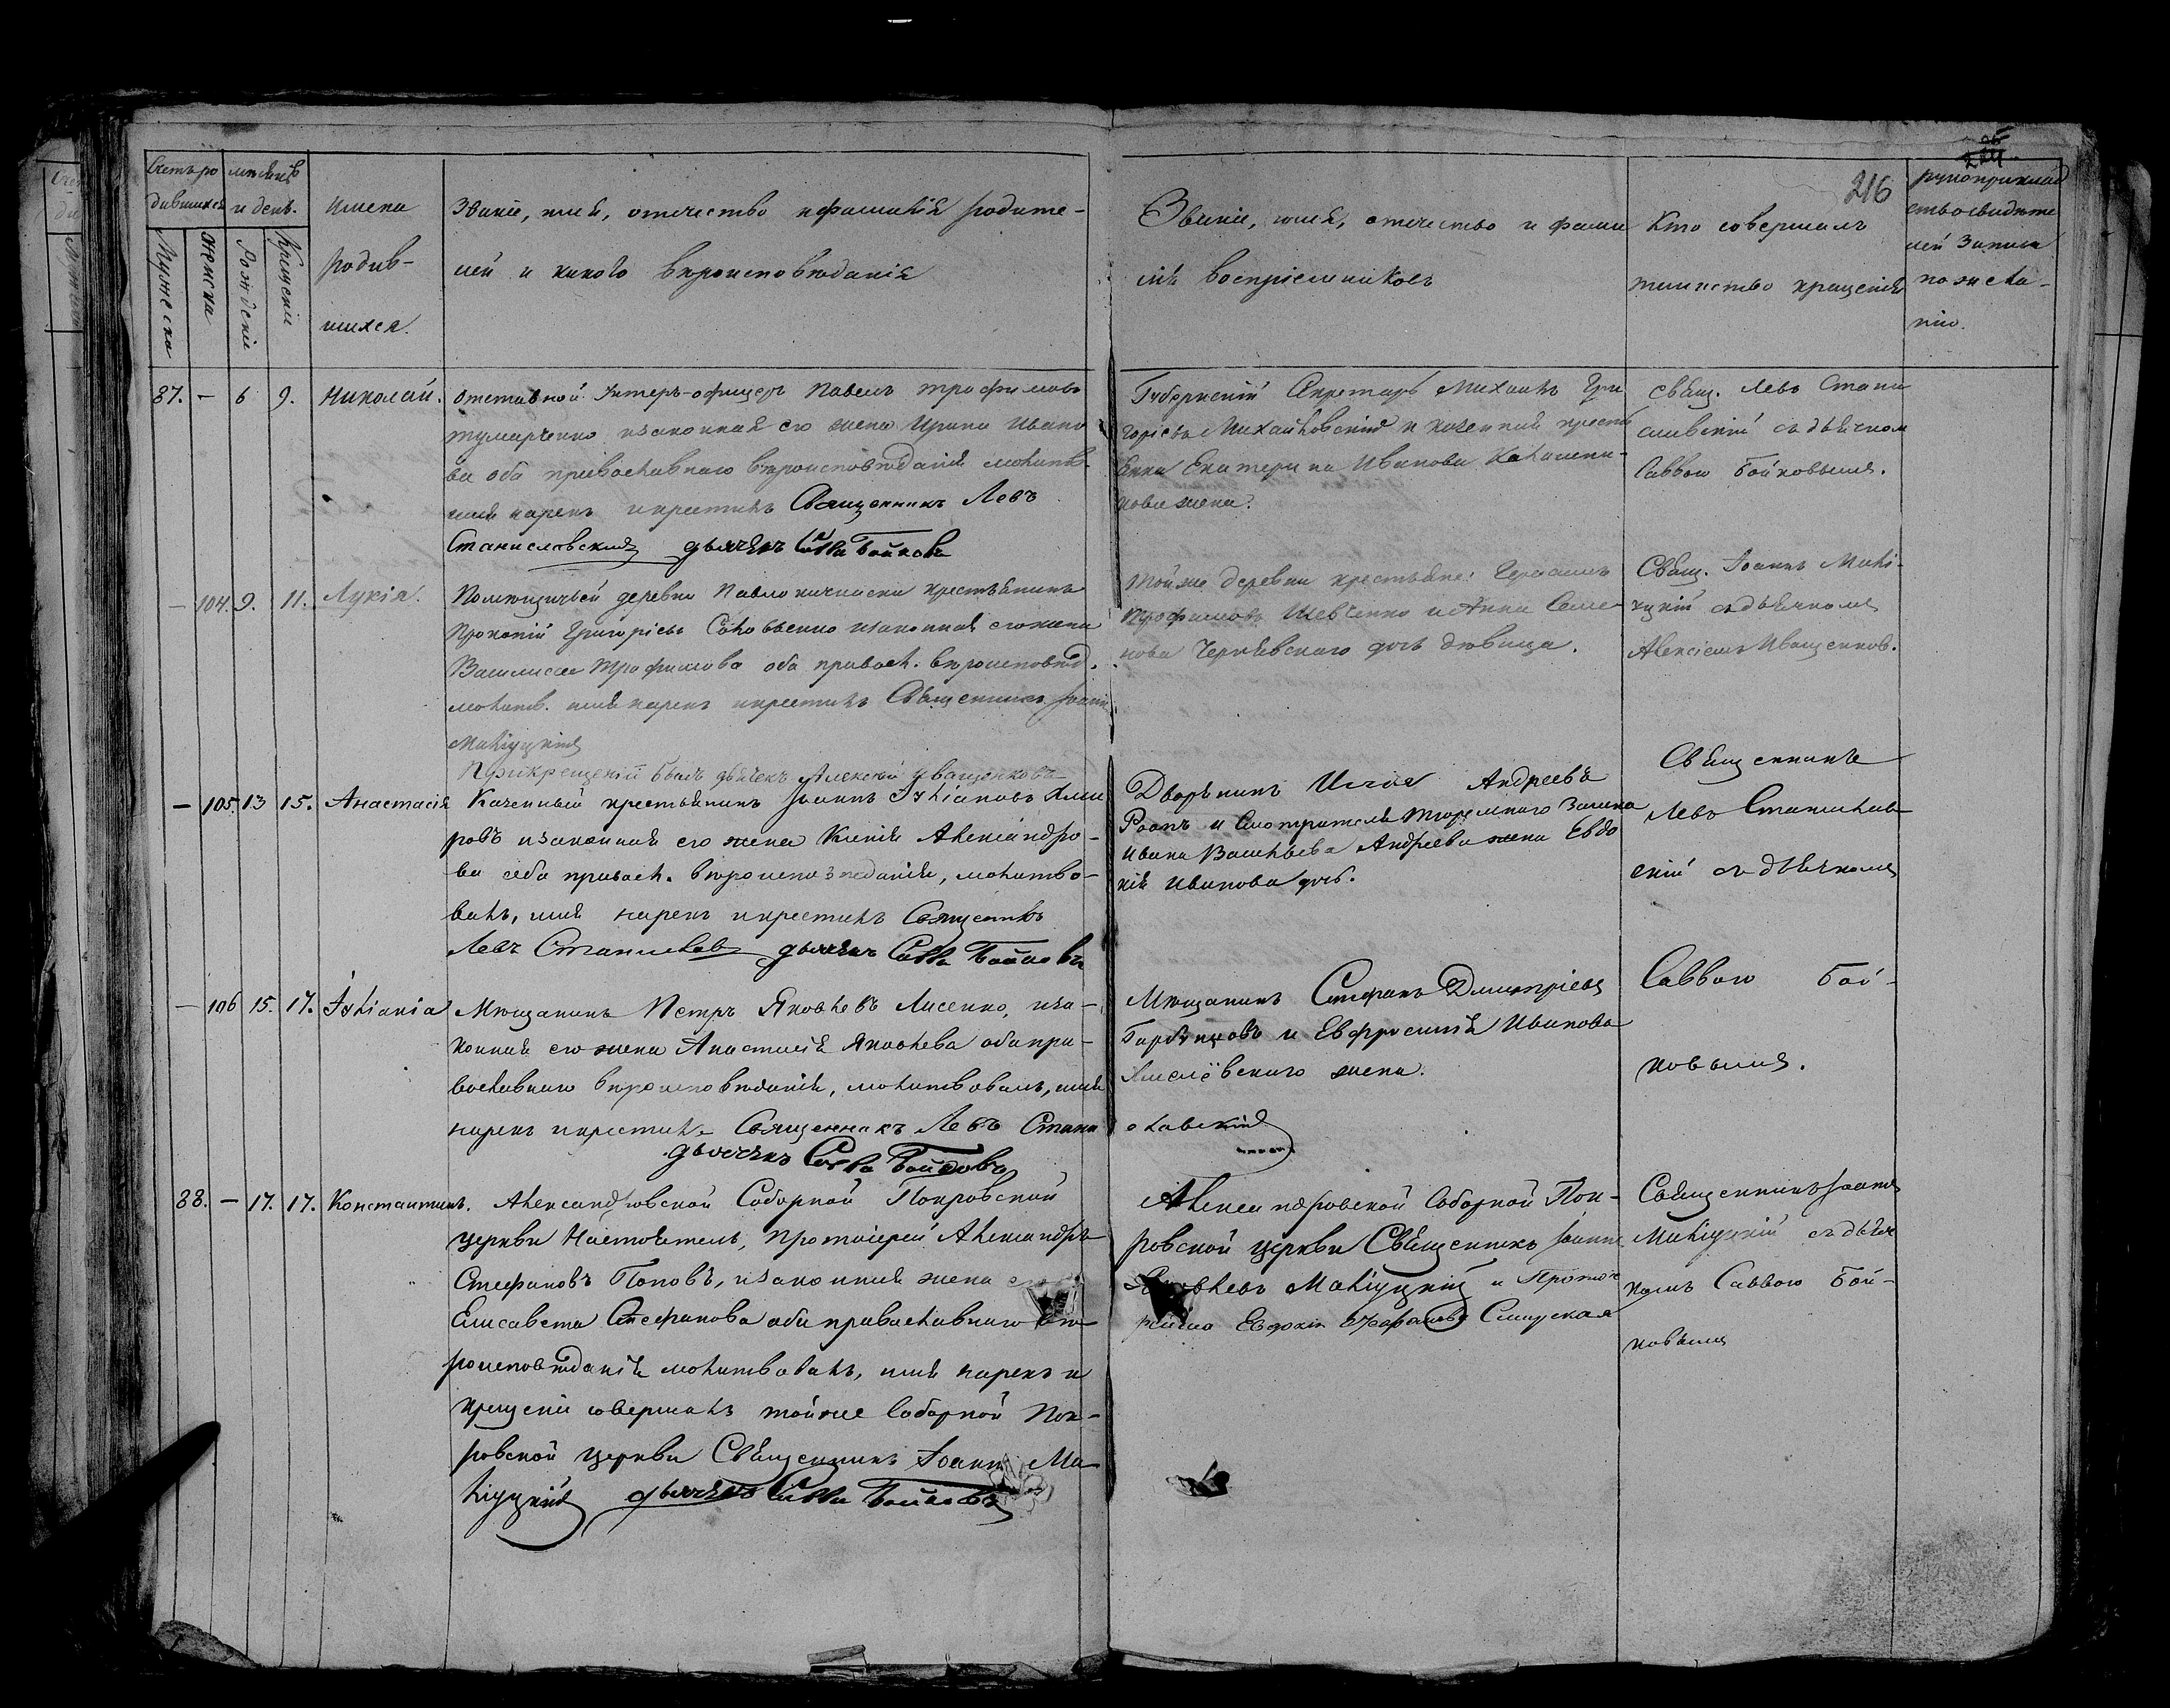 224
216
Счетъ ро
дившихся
Мужеска
Женска
мѣсяцъ
и день.
Рожденіе
Крещеніе
Имена
родив-
шихся.
Званіе, имя, отчество и фамилія родите-
лей и какого вѣроисповѣданія
Званіе, имя, отчество и фами
лія воспріемниковъ
Кто совершалъ
таинство крещенія
рукоприклад
ство свидѣте
лей записи
по жела-
нію.
87. – 6 9. Николай.
Отставной Унтеръ-офицеръ Павелъ Трофимовъ
и законная его жена Ирина Ивано
ва оба православнаго вѣроисповѣданія молитв.
имя нарекъ и крестилъ Священникъ Левъ
Станиславскій дьячекъ Савва Бойковъ
Губернскій Секретарь Михаилъ Гри
горіевъ Михайловскій и казенная крестья
янка Екатерина Иванова
жена.
Свящ. Левъ Стани
славскій съ дьячком
Саввою Бойковымъ.
– 104. 9. 11. Лукія.
Помѣщичьей деревни крестьянинъ
Прокопій Григоріевъ и законная его жена
Василиса Трофимова оба правосл. вѣроисповѣд.
молитв. имя нарекъ и крестилъ Священникъ Іоаннъ
Маліуцкій
При крещеніи былъ дьячекъ Алексій Иващенковъ
Той же деревни крестьяне: Герасимъ
Трофимовъ Шевченко и Анна Семе
нова Чернявскаго дочь дѣвица.
Свящ. Іоаннъ Малі-
уцкій съ дьячкомъ
Алексіемъ Иващенков.
– 105. 13 15. Анастасія
Казенный крестьянинъ Іоаннъ Іуліановъ
и законная его жена Ксенія Александро-
ва оба правосл. вѣроисповѣданія, молитво-
валъ, имя нарекъ и крестилъ Священникъ
Левъ Станислав дьячекъ Савва Бойковъ
Дворянинъ Илія Андреевъ
и Смотрителя Тюремнаго Замка
Ивана Васильева Андреева жена Евдо
кія Иванова дочь.
Священникъ
Левъ Станислав
скій съ дьячкомъ
– 106 15. 17. Іуліанія
Мѣщанинъ Петръ Яковлевъ Лисенко, и за-
конная его жена Анастасія Яковлева оба пра-
вославнаго вѣроисповѣданія, молитвовалъ, имя
нарекъ и крестилъ Священникъ Левъ Стани
славскій
дьячекъ Савва Бойковъ
Мѣщанинъ Стефанъ Димитріевъ
и Евфросинія Иванова
жена.
Саввою Бой-
ковымъ.
88. – 17. 17. Константинъ.
Александровской Соборной Покровской
церкви Настоятель, Протоіерей Александръ
Стефановъ Поповъ, и законная жена его
Елисавета Стефанова оба православнаго вѣ-
роисповѣданія молитвовалъ, имя нарекъ и
крещеніе совершалъ той же Соборной Пок-
ровской церкви Священникъ Іоаннъ Ма-
ліуцкій дьячекъ Савва Бойковъ
Александровской Соборной Пок-
ровской церкви Священникъ Іоаннъ
Яковлевъ Маліуцкій и
Евдокія
Священникъ Іоаннъ
Маліуцкій съ дьяч
комъ Саввою Бой-
ковымъ